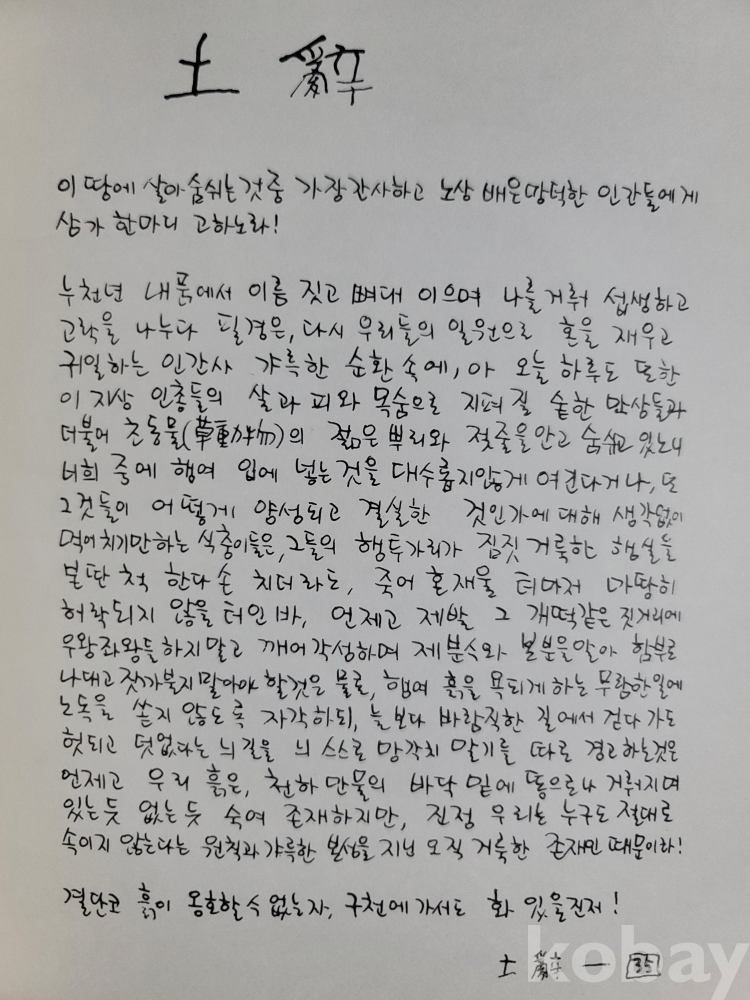 土辭
이 땅에 살아 숨쉬는것중 가장간사하고 노상 배은망덕한 인간들에게
삼가 한마디 고하노라!
누천년 내품에서 이름 짓고 뼈대 이으며 나를거춰 섭생하고
고락을 나누다 필경은, 다시 우리들의 일원으로 혼을 재우고
귀일하는 인간사 갸륵한 순환속에, 아 오늘 하루도 또한
이 지상 인총들의 살과 피와 목숨으로 지펴질 숱한 만상들과
더불어 초동물(草動物)의 젊은뿌리와 젖줄을안고 숨쉬고있노니
너희 중에 행여 입에 넣는것을 대수롭지않게 여긴다거나, 또
그것들이 어떻게 양성되고 결실한 것인가에대해 생각없이
먹어치기만하는 식충이들은, 그들의 행투가리가 짐짓 거룩한 행실을
본딴척 한다손 치더라도, 죽어 혼재울 터마저 마땅히
허락되지 않을터인바, 언제고 제발 그 개떡같은짓거리에
우왕좌왕들하지말고 깨어각성하며 제분식와 본분을알아 함부로
나대고 잣가불지말아야 할것은 물론, 행여 흙을 욕되게하는무람한일에
노독을 쏟지 않도록 자각하되, 늘보다 바람직한 길에서 걷다가도
헛되고 덧없다는 늬길을 늬 스스로 망각치 말기를 따로 경고하는것은
언제고 우리 흙은, 천하만물의 바닥 밑에 똥으로나 거춰지며
있는듯 없는듯 숙여 존재하지만, 진정 우리는 누구도 절대로
속이지 않는다는 원칙과 갸륵한 본성을지닌 오직 거룩한 존재인 때문이라!
결단코 흙이 옹호할수없는자, 구천에가서도 화 있을진저!
土辭 — 35
kobay